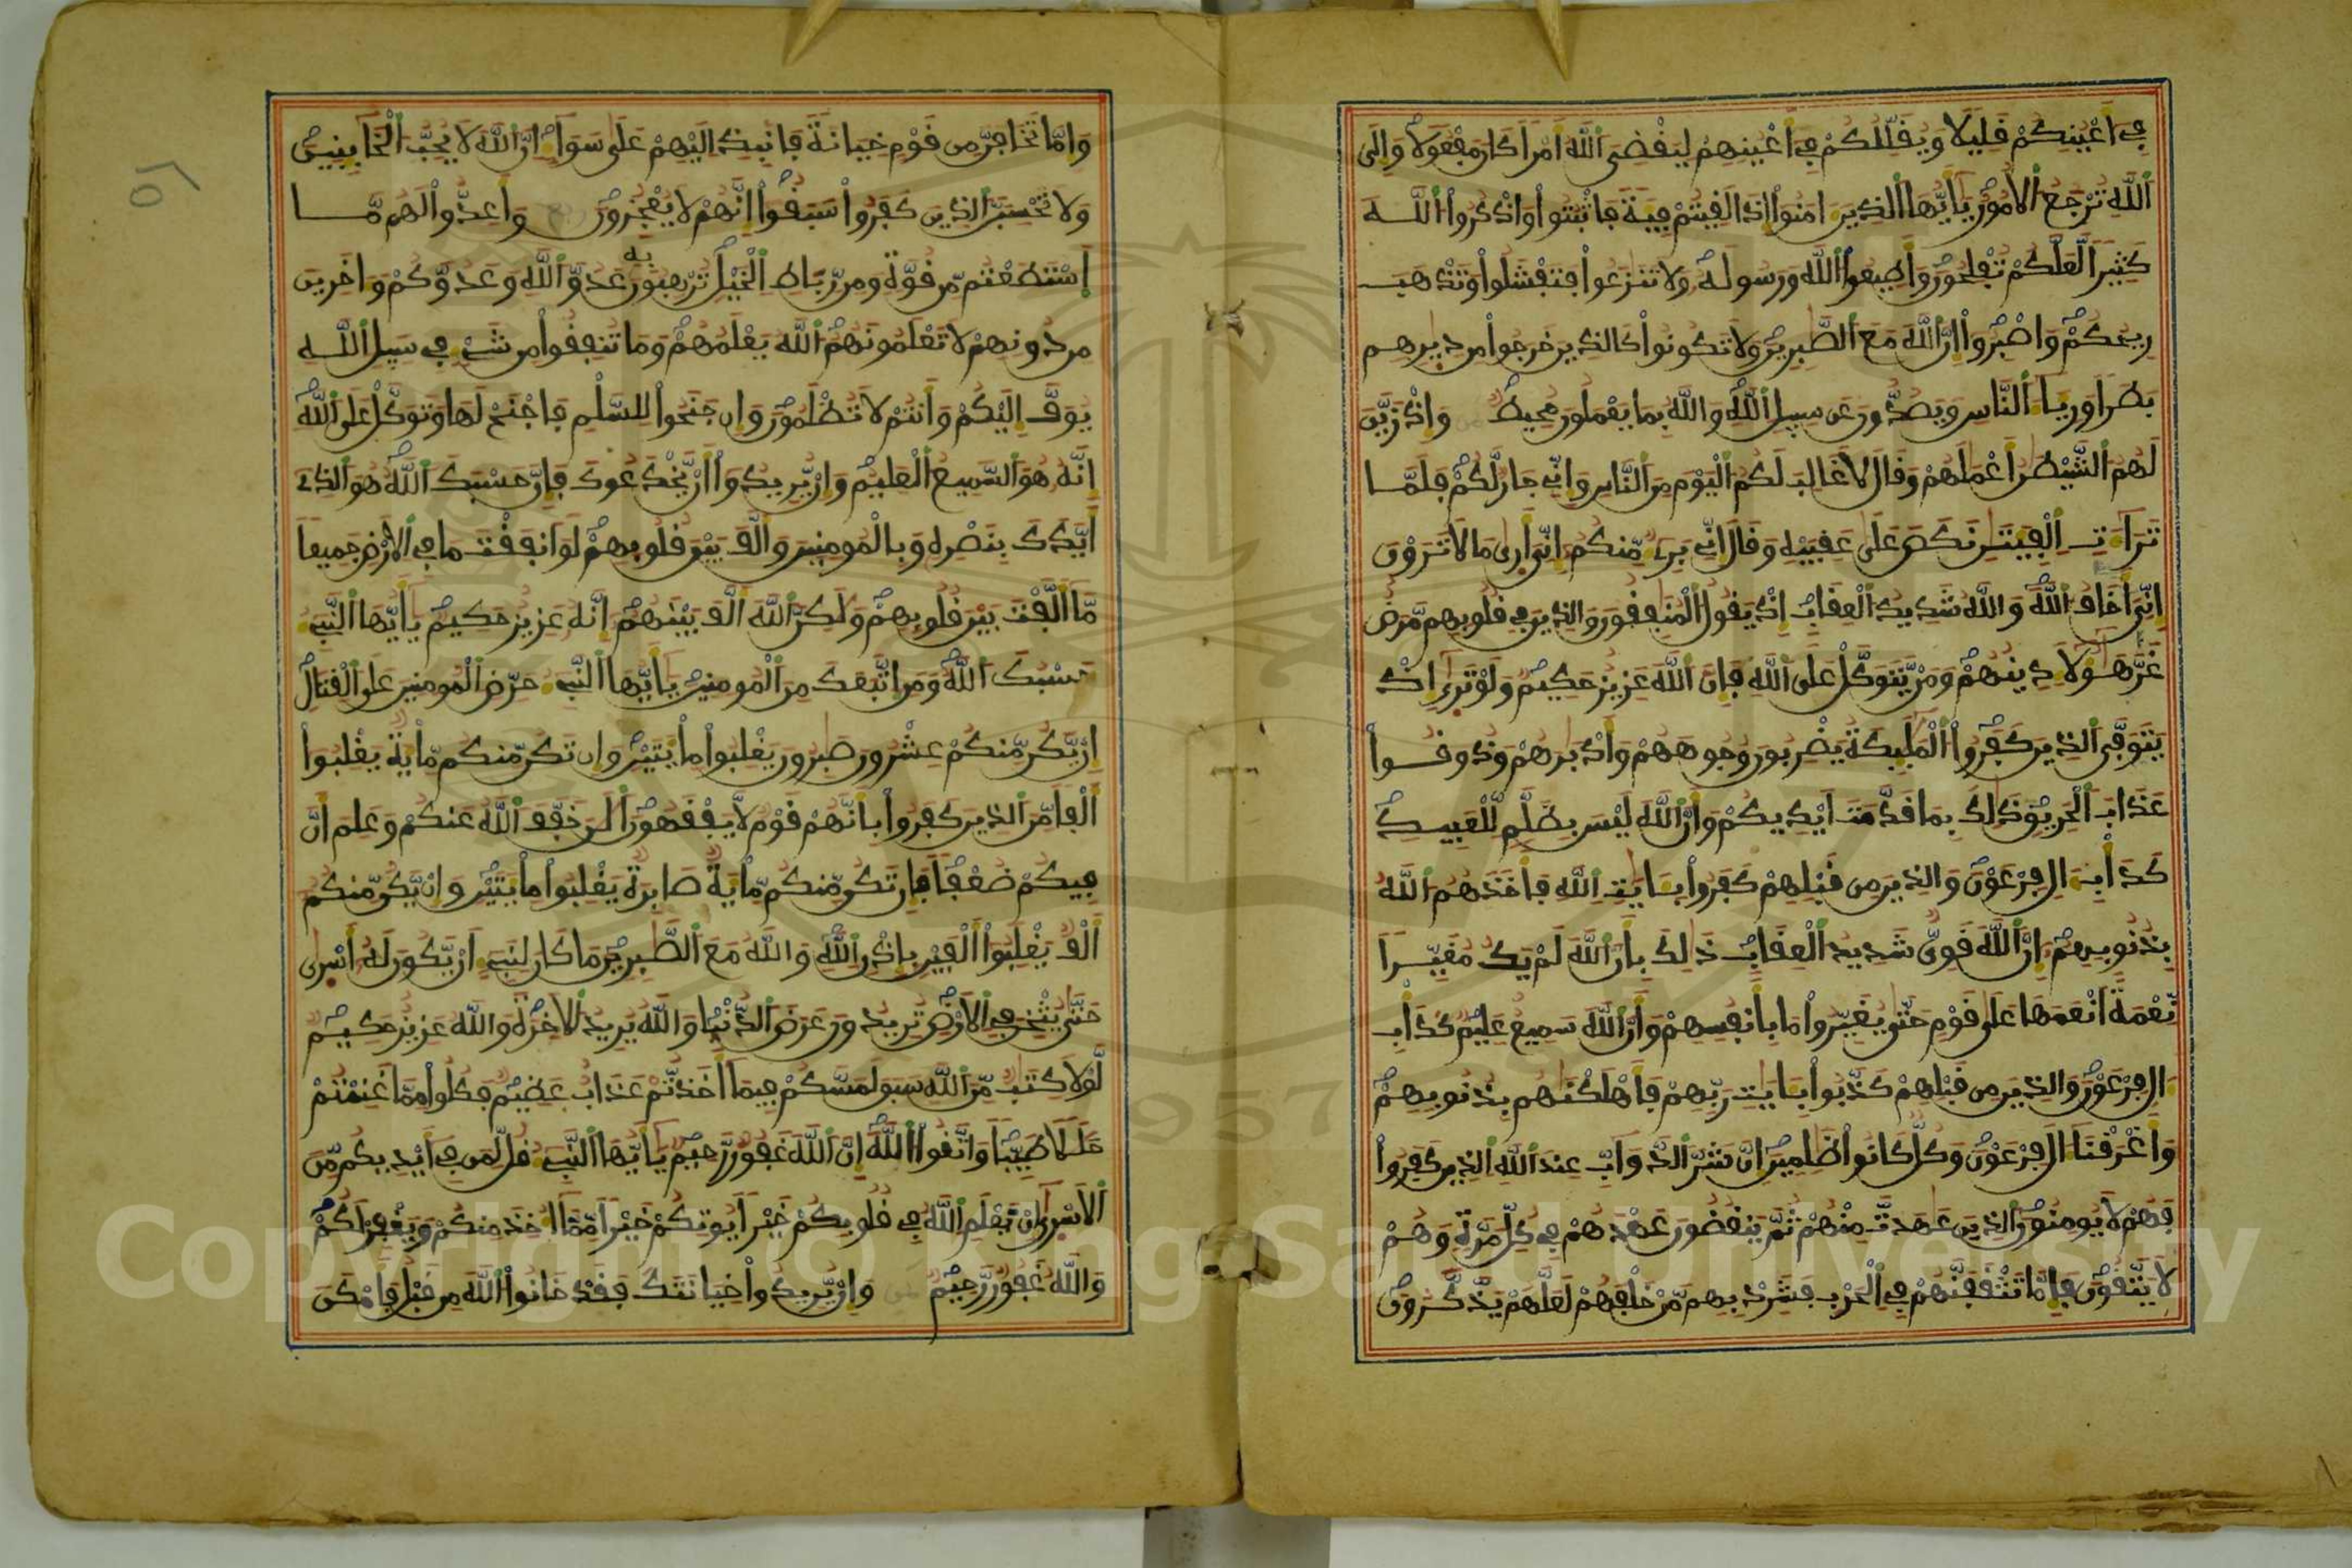 في أعينكم قليلا ويقللكم في أعينهم ليقضي الله أمرا كان مفعولا وإلى
الله ترجع الأمور يأيها الذين ءامنوا إذا لقيتم فية فاثبتوا واذكروا الله
كثيرا لعلكم تفلحون وأطيعوا الله ورسوله ولا تنزعوا فتفشلوا وتذهب
ريحكم واصبروا إن الله مع الصبرين ولا تكونوا كالذين خرجوا من ديرهم
بطرا ورياء الناس ويصدون عن سبيل الله والله بما يعملون محيط وإذ زين
لهم الشيطن أعملهم وقال لا غالب لكم اليوم من الناس وإني جار لكم فلما
تراءت الفيتن نكص على عقبيه وقال إني بريء منكم إني أرى ما لا ترون
إني أخاف الله والله شديد العقاب إذ يقول المنفقون والذين في قلوبهم مرض
غر هؤلاء دينهم ومن يتوكل على الله فإن الله عزيز حكيم ولو ترى إذ
يتوفى الذين كفروا المليكة يضربون وجوههم وأدبرهم وذوقوا
عذاب الحريق ذلك بما قدمت أيديكم وأن الله ليس بظلم للعبيد
كدأب ءال فرعون والذين من قبلهم كفروا بئايت الله فأخذهم الله
بذنوبهم إن الله قوي شديد العقاب ذلك بأن الله لم يك مغيرا
نعمة أنعمها على قوم حتى يغيروا ما بأنفسهم وأن الله سميع عليم كدأب
ءال فرعون والذين من قبلهم كذبوا بئايت ربهم فأهلكنهم بذنوبهم
وأغرقنا ءال فرعون وكل كانوا ظلمين إن شر الدواب عند الله الذين كفروا
فهم لا يومنون الذين عهدت منهم ثم ينقضون عهدهم في كل مرة وهم
لا يتقون فإما تثقفنهم في الحرب فشرد بهم من خلفهم لعلهم يذكرون
وإما تخافن من قوم خيانة فانبذ إليهم على سواء إن الله لا يحب الخاينين
ولا تحسبن الذين كفروا سبقوا إنهم لا يعجزون وأعدوا لهم ما
استطعتم من قوة ومن رباط الخيل ترهبون به عدو الله وعدوكم وءاخرين
من دونهم لا تعلمونهم الله يعلمهم وما تنفقوا من شيء في سبيل الله
يوف إليكم وأنتم لا تظلمون وإن جنحوا للسلم فاجنح لها وتوكل على الله
إنه هو السميع العليم وإن يريدوا أن يخدعوك فإن حسبك الله هو الذي
أيدك بنصره وبالمومنين وألف بين قلوبهم لو انفقت ما في الأرض جميعا
ما ألفت بين قلوبهم ولكن الله ألف بينهم إنه عزيز حكيم يأيها النبيء
حسبك الله ومن اتبعك من المومنين يأيها النبيء حرض المومنين على القتال
إن يكن منكم عشرون صبرون يغلبوا مايتين وإن تكن منكم ماية يغلبوا
ألفا من الذين كفروا بأنهم قوم لا يفقهون الن خفف الله عنكم وعلم أن
فيكم ضعفا فإن تكن منكم ماية صابرة يغلبوا مايتين وإن يكن منكم
ألف يغلبوا ألفين بإذن الله والله مع الصبرين ما كان لنبيء أن يكون له أسرى
حتى يثخن في الأرض تريدون عرض الدنيا والله يريد الاخرة والله عزيز حكيم
لولا كتب من الله سبق لمسكم فيما أخذتم عذاب عظيم فكلوا مما غنمتم
حللا طيبا واتقوا الله إن الله غفور رحيم يأيها النبيء قل لمن في أيديكم من
الأسرى إن يعلم الله في قلوبكم خيرا يوتكم خيرا مما أخذ منكم ويغفر لكم
والله غفور رحيم وإن يريدوا خيانتك فقد خانوا الله من قبل فأمكن